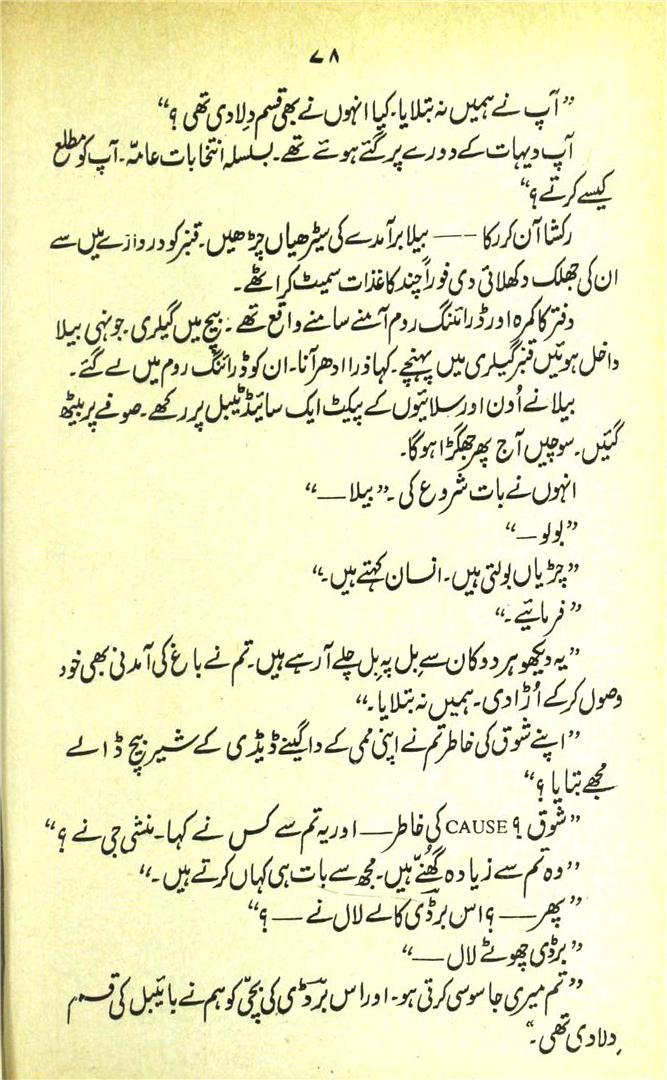 ۷۸
”آپ نے ہمیں نہ بتلایا۔ کیا انہوں نے بھی قسم دِلا دی تھی ؟“
آپ دیہات کے دورے پر گئے ہوئے تھے۔ بسلسلہ انتخابات عامّہ۔ آپ کو مطلع
کیسے کرتے ؟“
رکشا آن کر رکا —— بیلا برآمدے کی سیڑھیاں چڑھیں۔ قنبر کو دروازے میں سے
ان کی جھلک دکھلائی دی فوراً چند کاغذات سمیٹ کر اٹھے۔
دفتر کا کمرہ اور ڈرائنگ روم آمنے سامنے واقع تھے۔ بیچ میں گیلری۔ جونہی بیلا
داخل ہوئیں قنبر گیلری میں پہنچے۔ کہا ذرا ادھر آنا۔ ان کو ڈرائنگ روم میں لے گئے۔
بیلا نے اُون اور سلائیوں کے پیکٹ ایک سائیڈ ٹیبل پر رکھے۔ صوفے پر بیٹھ
گئیں۔ سوچیں آج پھر جھگڑا ہوگا۔
انہوں نے بات شروع کی۔ ”بیلا —“
”بولو —“
”چڑیاں بولتی ہیں۔ انسان کہتے ہیں۔“
”فرمائیے۔“
”یہ دیکھو ہر دوکان سے بِل پہ بِل چلے آ رہے ہیں۔ تم نے باغ کی آمدنی بھی خود
وصول کر کے اُڑا دی۔ ہمیں نہ بتلایا۔“
”اپنے شوق کی خاطر تم نے اپنی ممی کے دا گینے ڈیڈی کے شیر بیچ ڈالے
مجھے بتایا ؟“
”شوق ؟ CAUSE کی خاطر — اور یہ تم سے کس نے کہا۔ منشی جی نے ؟“
”وہ تم سے زیادہ گھُنّے ہیں۔ مجھ سے بات ہی کہاں کرتے ہیں۔“
”پھر — ؟ اس برڈی کالے لال نے — ؟“
”برڈی چھوٹے لال —“
”تم میری جاسوسی کرتی ہو۔ اور اس برّڈی کی بچّی کو ہم نے بائیبل کی قسم
دِلا دی تھی۔“